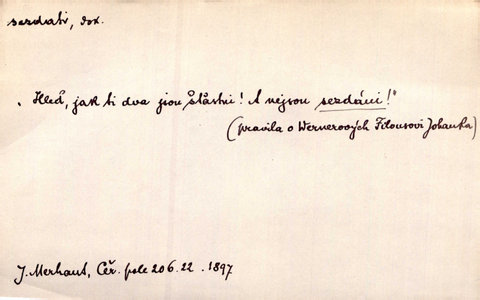 sezdati, dok.
„Hleď, jak ti dva jsou šťastni! A nejsou sezdáni!“
(pravila o Wernerových Filousovi Johanka)
J. Merhaut, Čer. pole 206.22. 1897